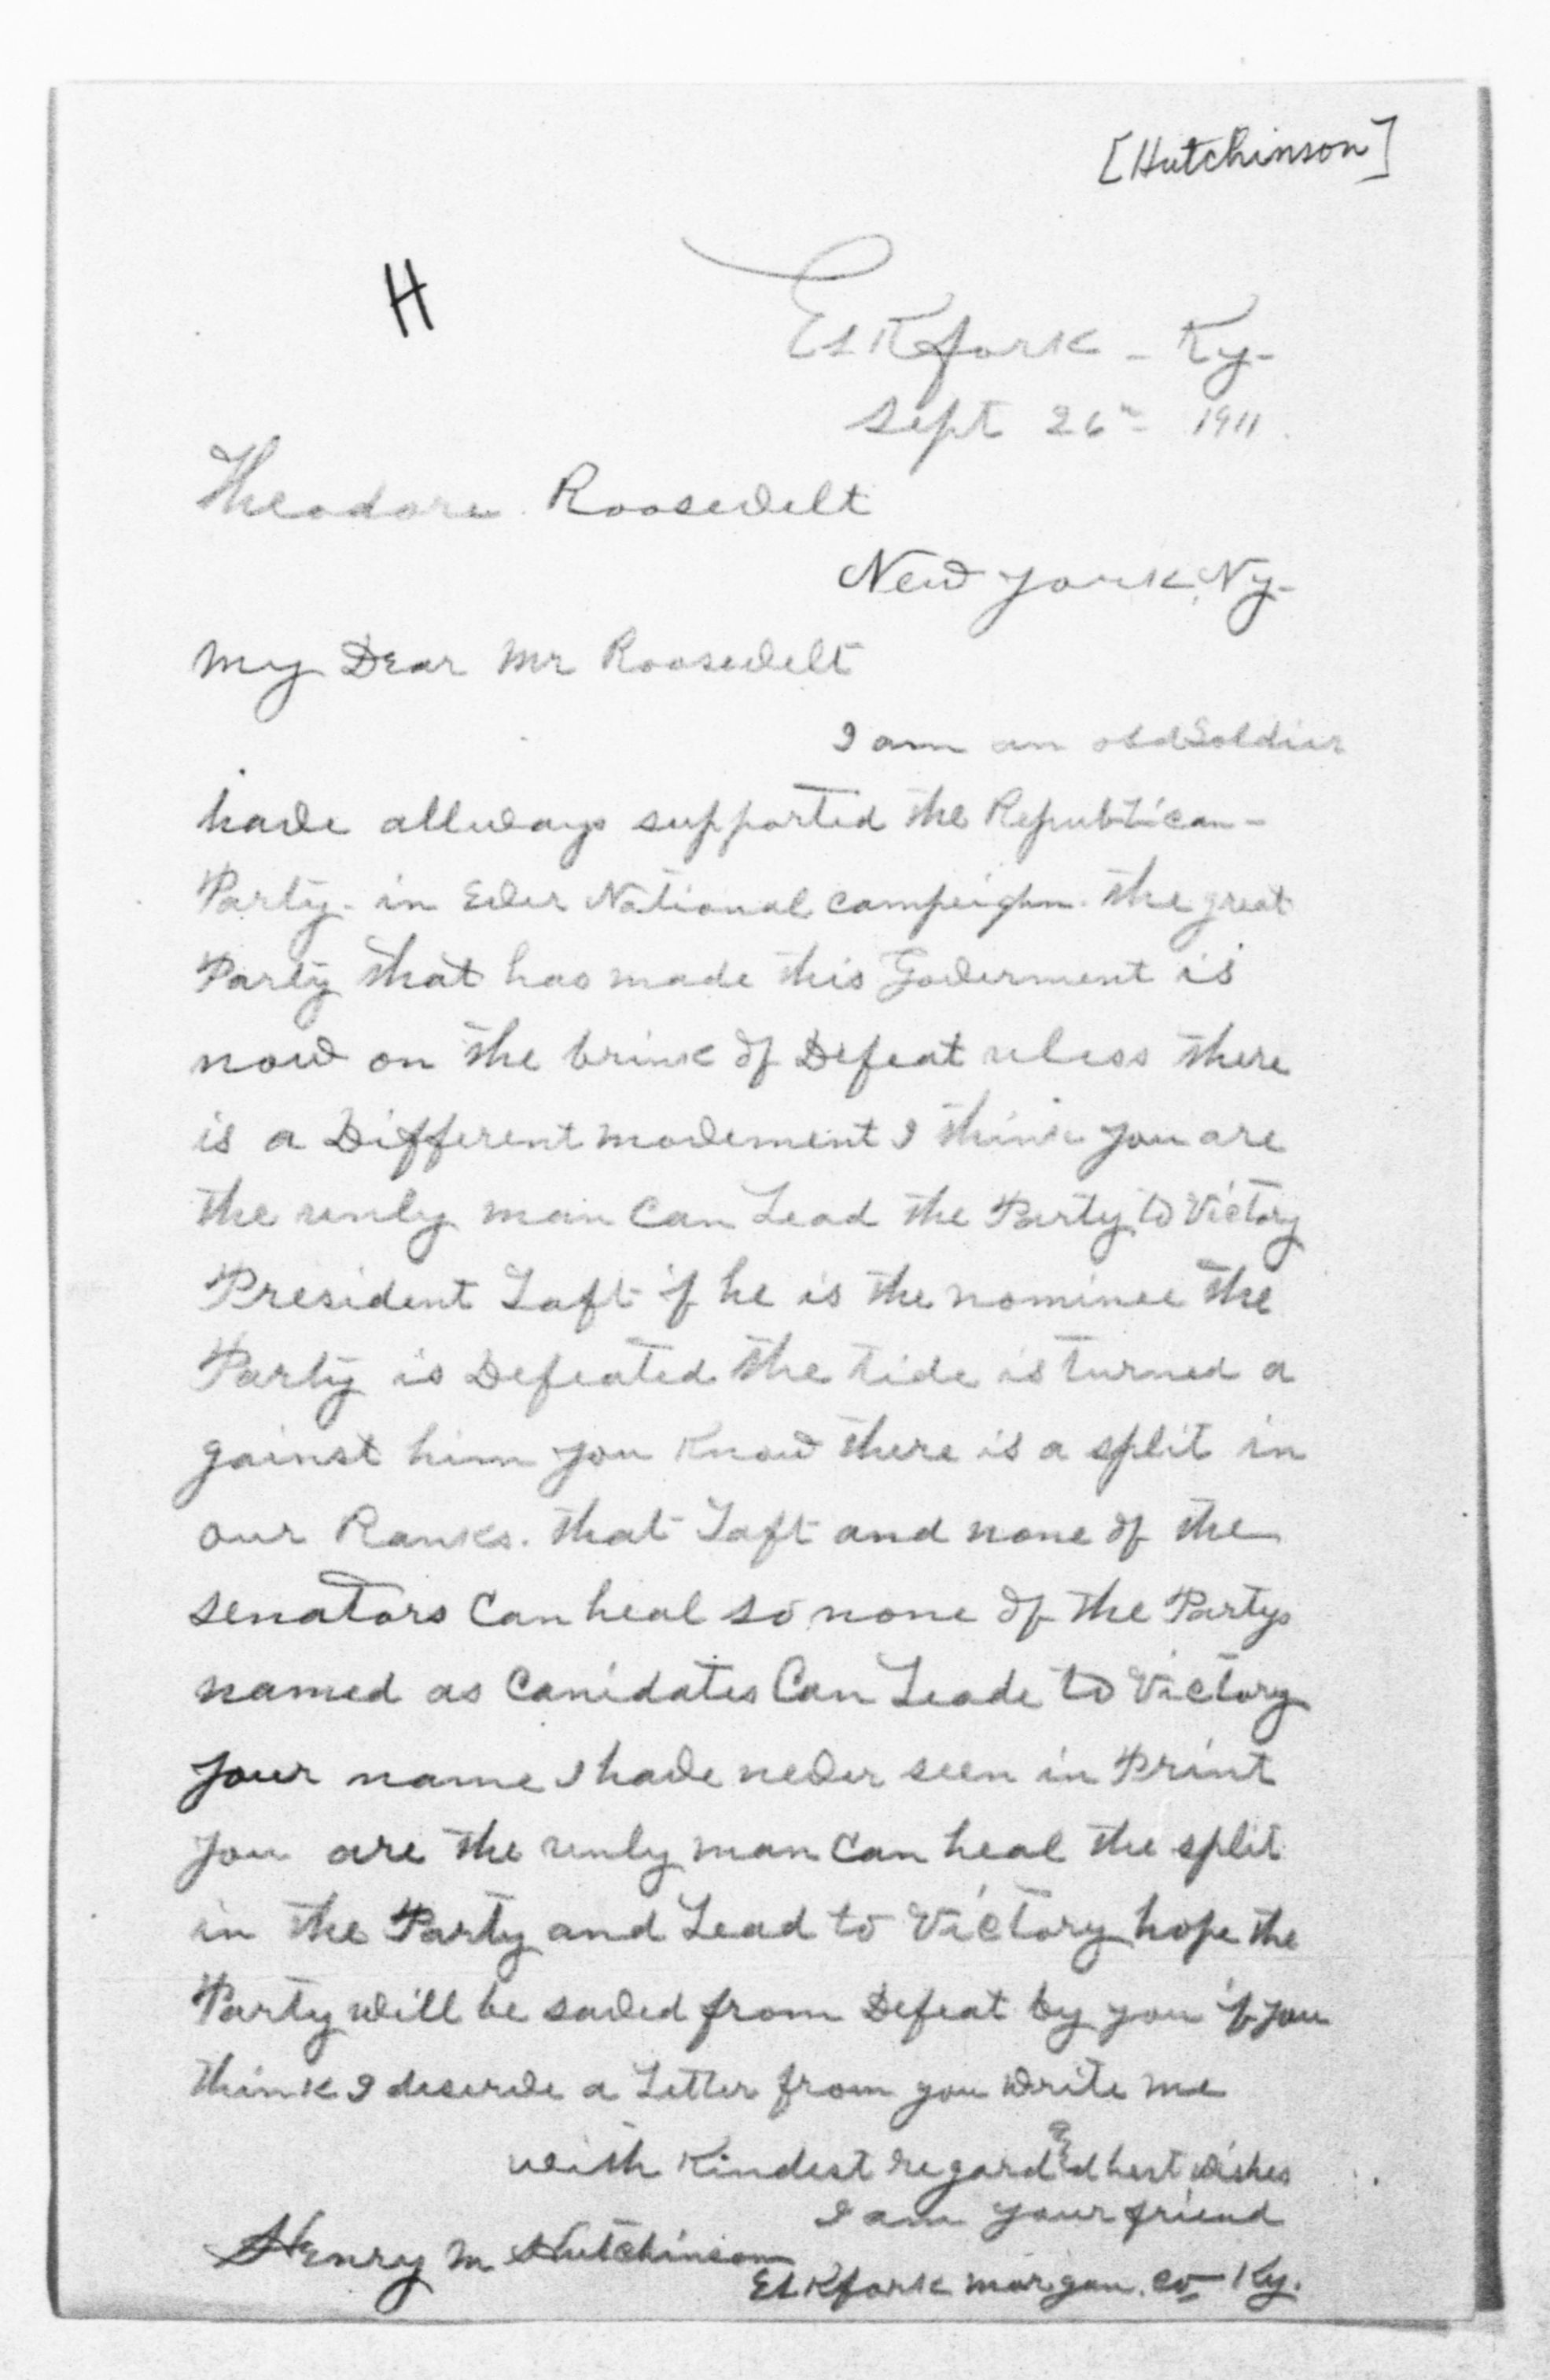 [Hutchinson]
H
Elkfork - Ky-
Sept 26" 1911.
Theodore Roosevelt
New york, Ny-
my Dear mr Roosevelt
I am an old Soldier
have allways supported the Republican-
Party- in Ever National campeighn. the great
Party that has made this Goverment is
now on the brink of Defeat unless there
is a Different movement I think you are
the unly man can Lead the Party to Victory
President Taft if he is the nominee the
Party is Defeated the tide is turned a
gainst him you Know there is a split in
our Ranks. that Taft and none of the
senators can heal so none of the Partys
named as canidates Can Leade to Victory
your name I have never seen in Print
you are the unly man can heal the split
in the Party and Lead to Victory hope the
Party will be saved from Defeat by you if you
think I deserve a Letter from you write me
with Kindest regard and best wishes
I am your friend
Henry m Hutchinson
Elkfork morgan. co- Ky.